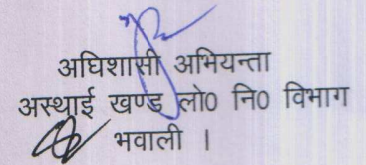 अघिशासी अभियन्ता
अस्थाई खण्ड लो0 नि0 विभाग
भवाली ।